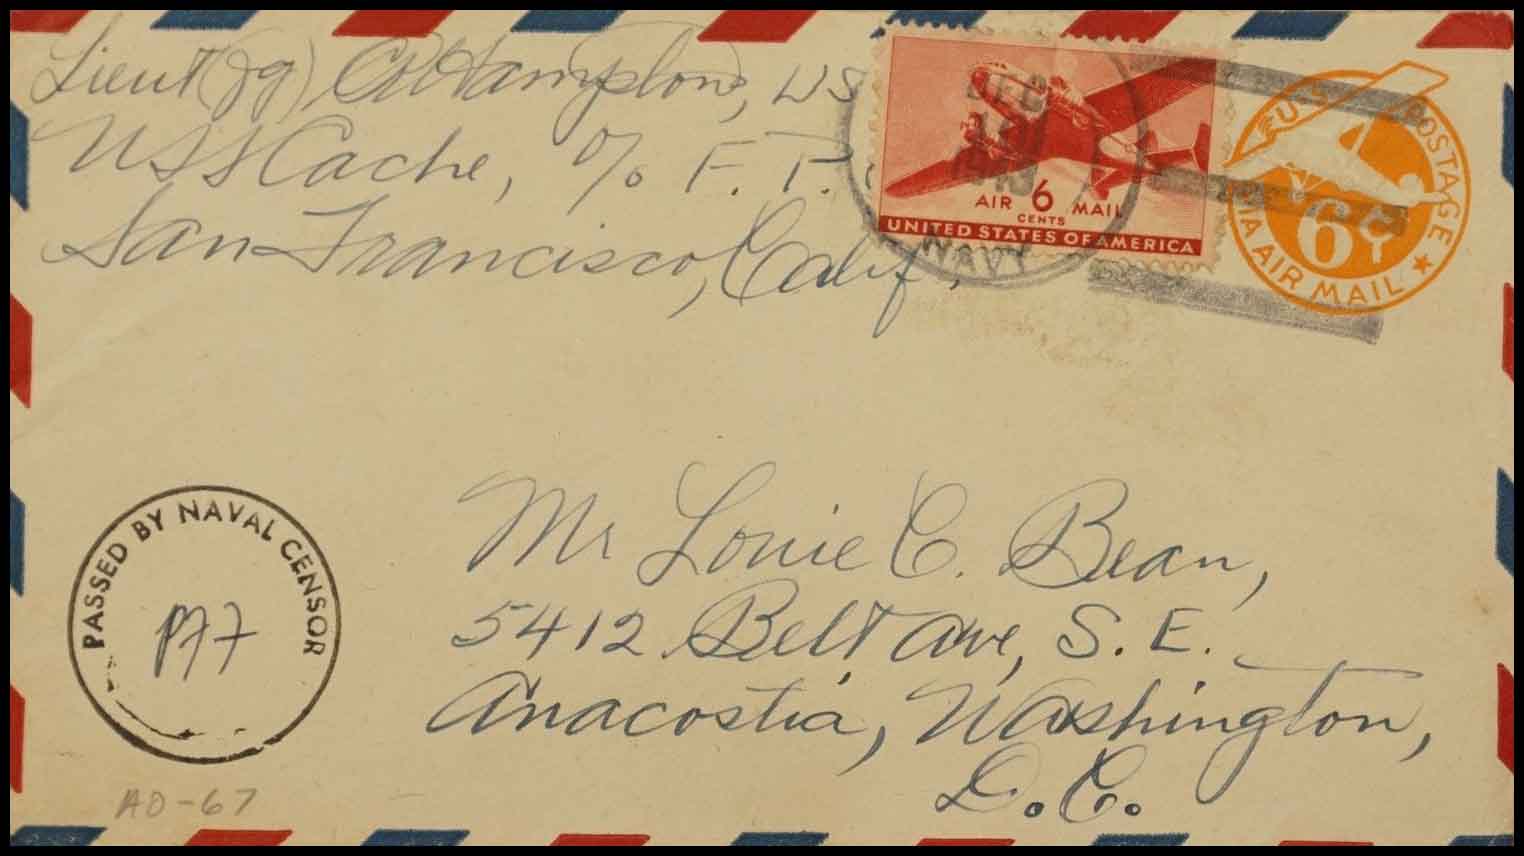 Lieut (jg) Hampton, US
USS Cache, % F. P.
San Francisco, Calif,
DEC
AIR 6 MAIL
CENTS
UNITED STATES OF AMERICA
NAVY
U.S. POSTAGE
6¢
VIA AIR MAIL
PASSED BY NAVAL CENSOR
Mr Louie C. Bean,
5412 Belt Ave, S. E.
Anacostia, Washington,
D. C.
AO-67